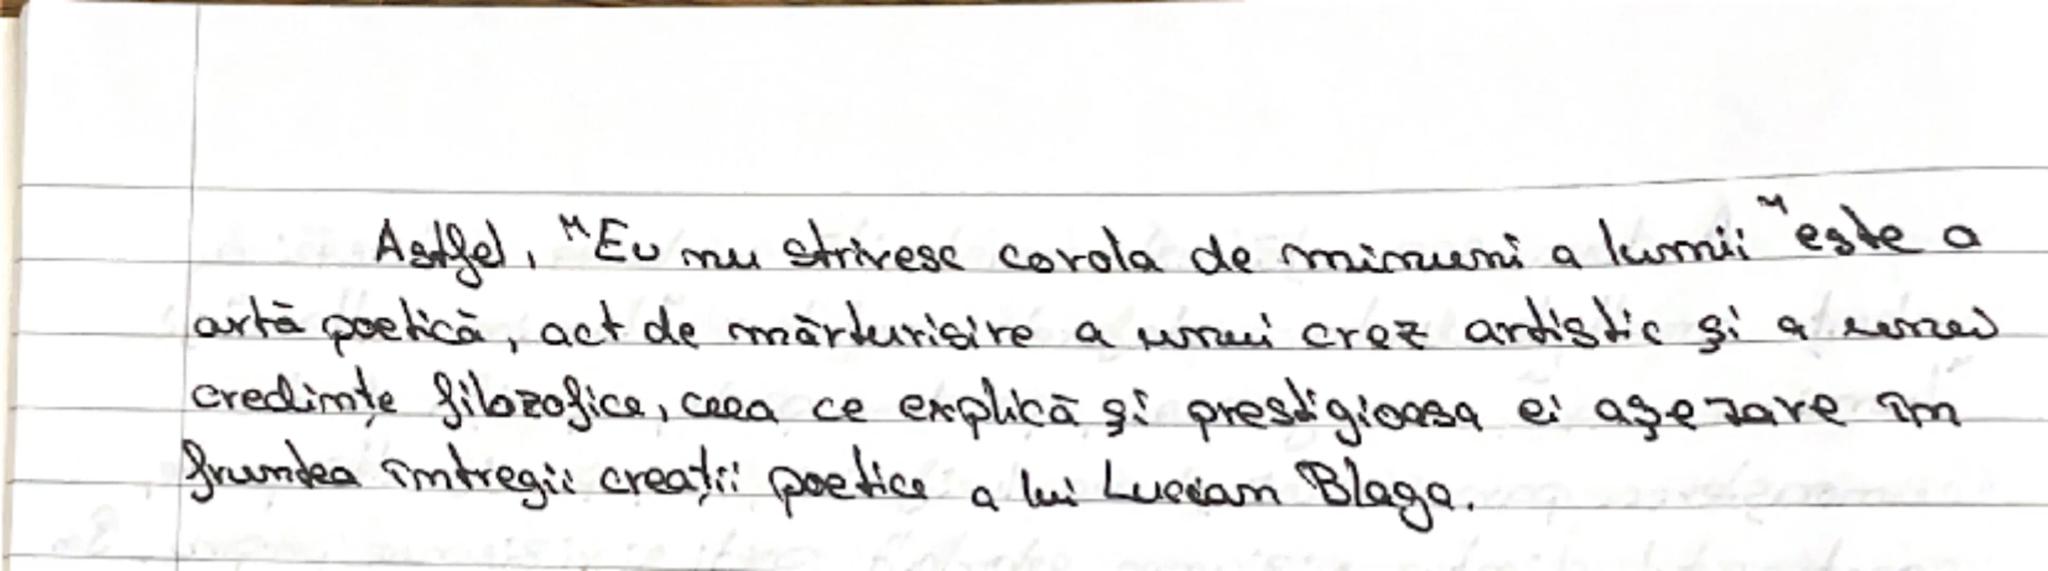 Astfel, "Eu nu strivesc corola de minuni a lumii" este a
artă poetică, act de mărturisire a unui crez artistic și a unei
credințe filozofice, ceea ce explică și prestigioasa ei așezare în
fruntea întregii creații poetice a lui Lucian Blaga.